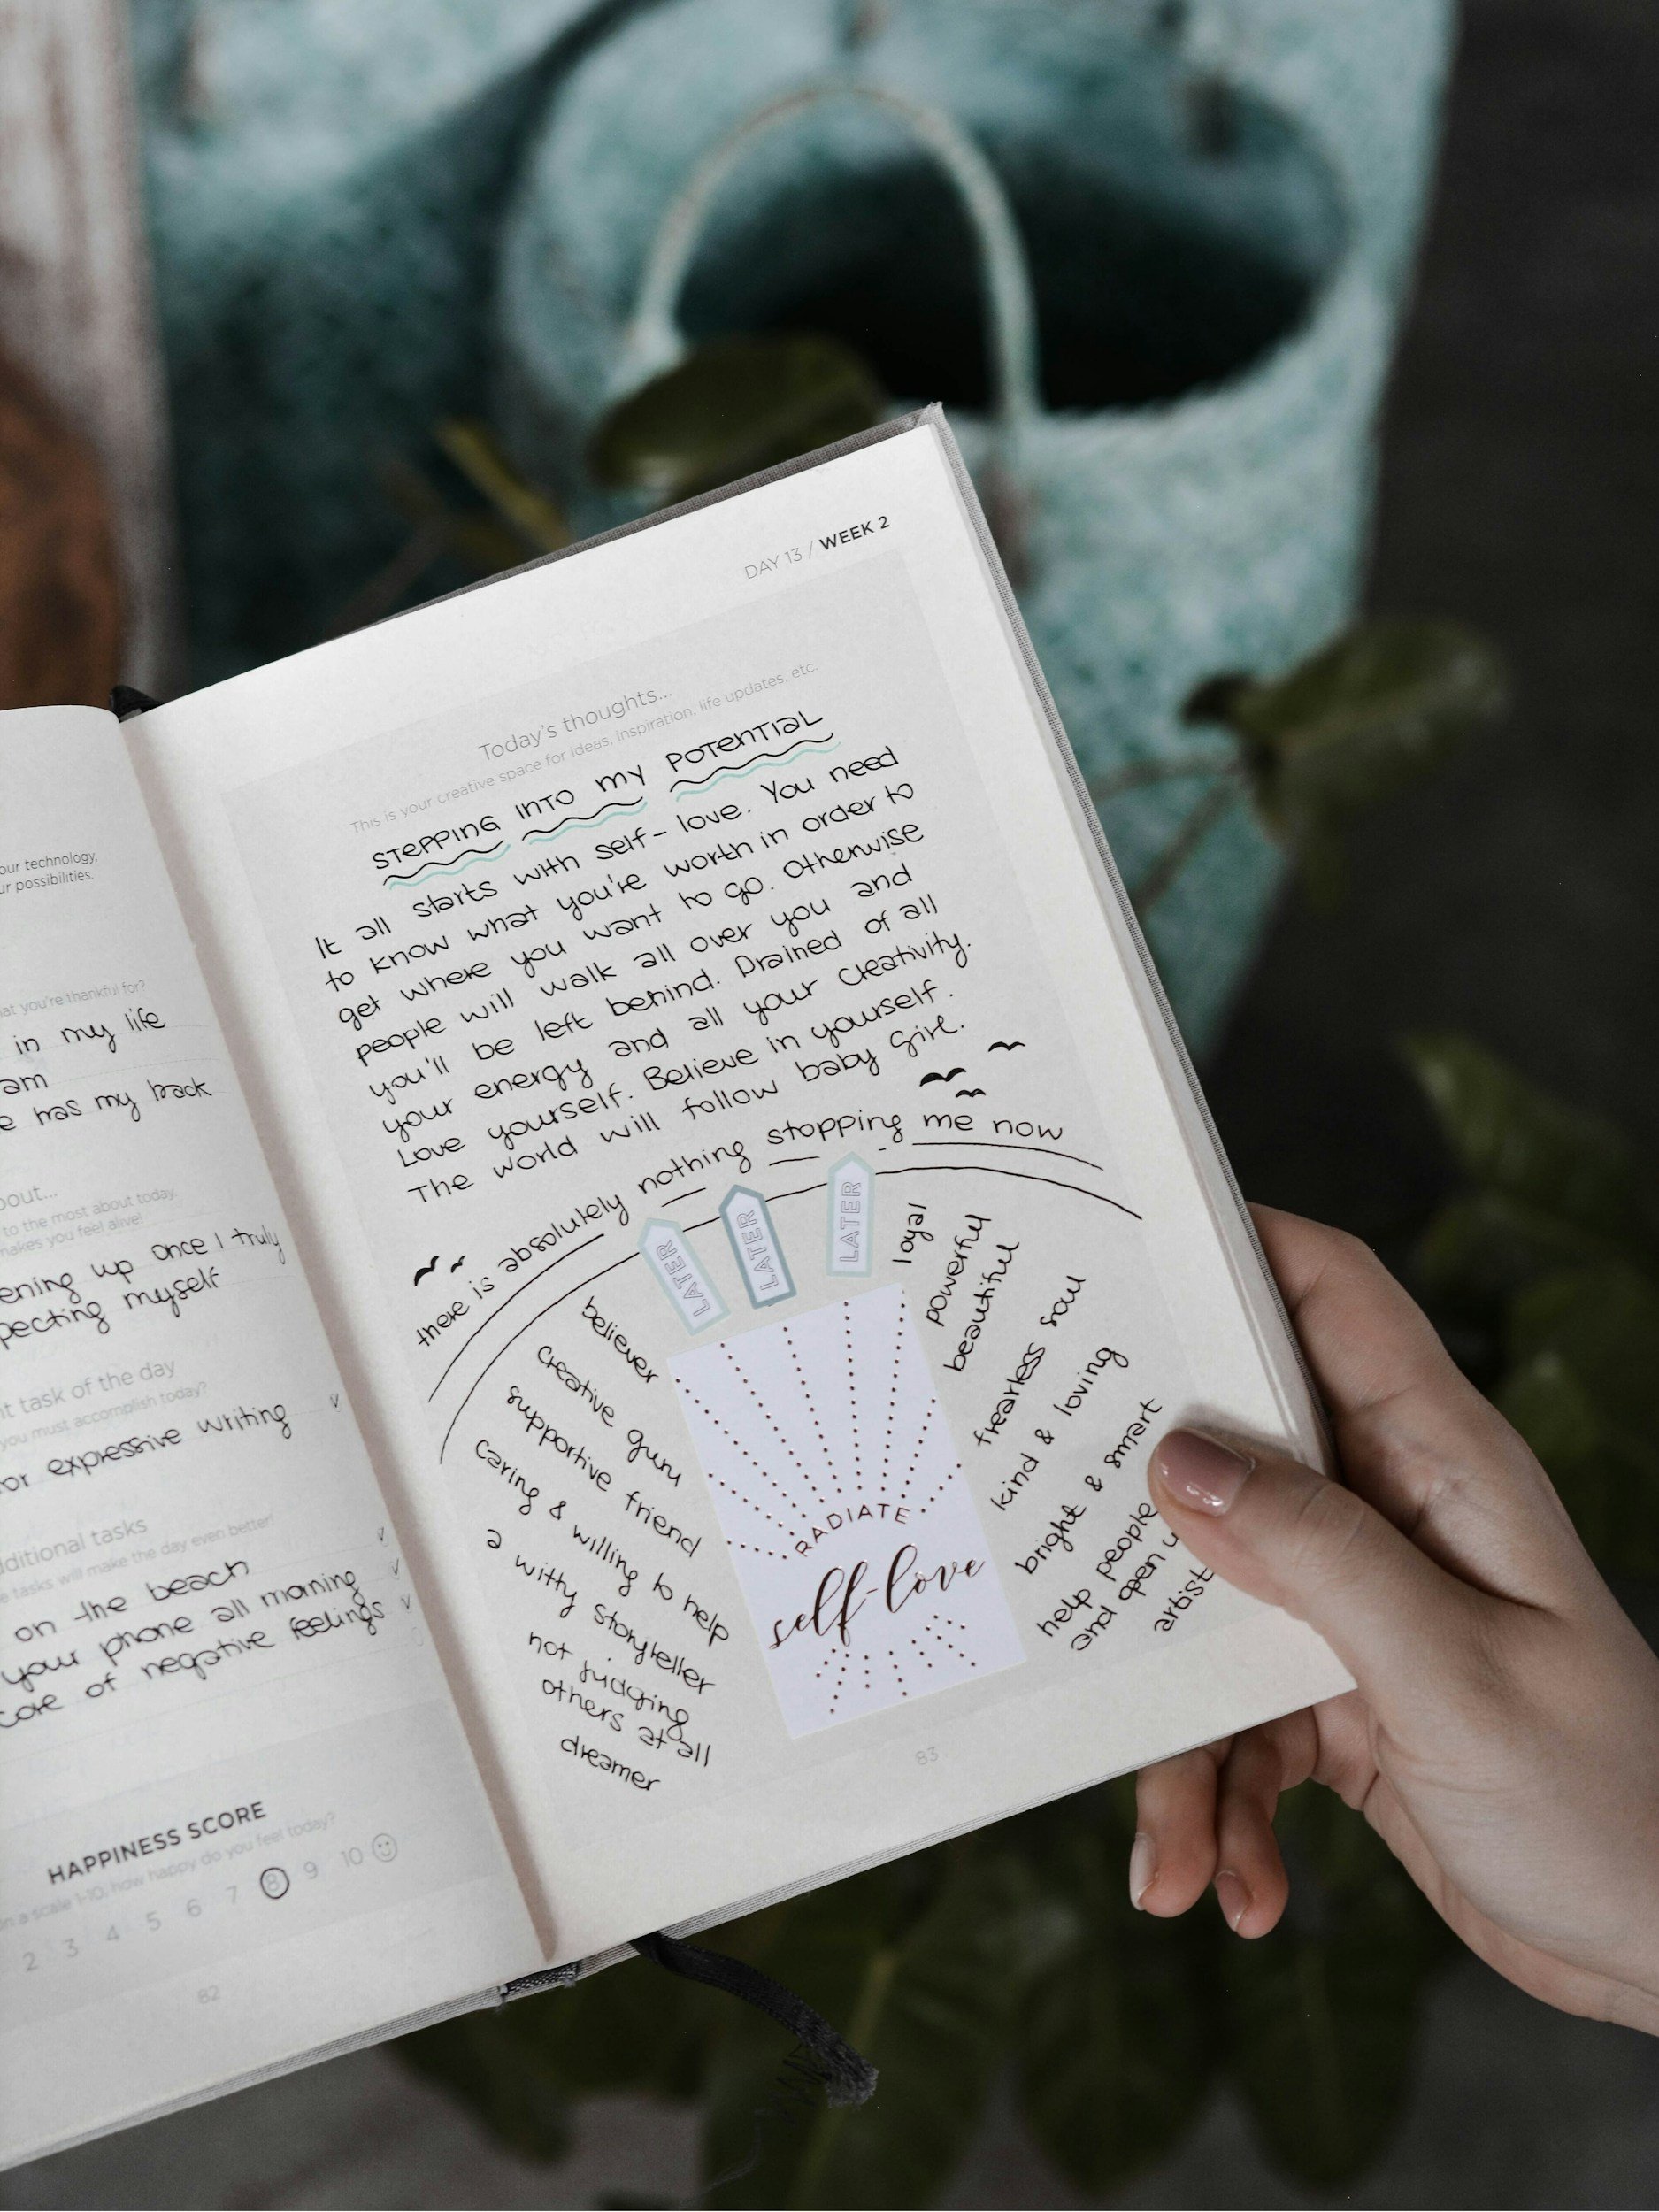 our technology,
ur possibilities.
at you're thankful for?
in my life
am
e has my back
bout...
to the most about today,
makes you feel alive!
ening up once I truly
pecting myself
nt task of the day
you must accomplish today?
for expressive writing
dditional tasks
e tasks will make the day even better!
on the beach
your phone all morning
core of negative feelings
HAPPINESS SCORE
on a scale 1-10, how happy do you feel today?
2 3 4 5 6 7 8 9 10
82
DAY 13 / WEEK 2
Today's thoughts...
This is your creative space for ideas, inspiration, life updates, etc.
STEPPING INTO MY POTENTIAL
It all starts with self-love. You need
to know what you're worth in order to
get where you want to go. Otherwise
people will walk all over you and
you'll be left behind. Drained of all
your energy and all your creativity.
Love yourself. Believe in yourself.
The world will follow baby girl.
there is absolutely nothing stopping me now
LATER
LATER
LATER
believer
creative guru
supportive friend
caring & willing to help
a witty storyteller
not judging
others at all
dreamer
RADIATE
self-love
loyal
powerful
beautiful
fearless soul
kind & loving
bright & smart
help people
and open u
artist
83